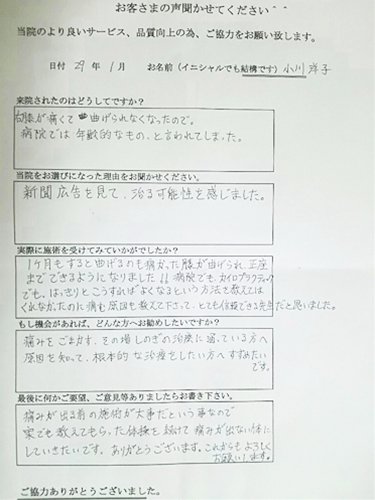 お客さまの声聞かせてください＾＾
当院のより良いサービス、品質向上の為、ご協力をお願い致します。
日付 29年 1月 お名前（イニシャルでも結構です）小川 洋子
来院されたのはどうしてですか？
右膝が痛くて曲げられなくなったので。
病院では年齢的なもの、と言われてしまった。
当院をお選びになった理由をお聞かせください。
新聞広告を見て、治る可能性を感じました。
実際に施術を受けてみていかがでしたか？
1ヶ月もすると曲げるのも痛かった膝が曲げられ、正座
までできるようになりました!! 病院でも、カイロプラクティック
でも、はっきりとこうすればよくなるという方法を教えては
くれなかったのに痛む原因も教えて下さって、とても信頼できる先生だと思いました。
もし機会があれば、どんな方へお勧めしたいですか？
痛みをごまかす、その場しのぎの治療に迷っている方へ
原因を知って、根本的な治療をしたい方へすすめたい
です。
最後に何かご要望、ご意見等ありましたらお書き下さい。
痛みが出る前の施術が大事だという事なので
家でも教えてもらった体操を続けて痛みが出ない体に
していきたいです。ありがとうございます。これからもよろしく
お願いします。
ご協力ありがとうございました。